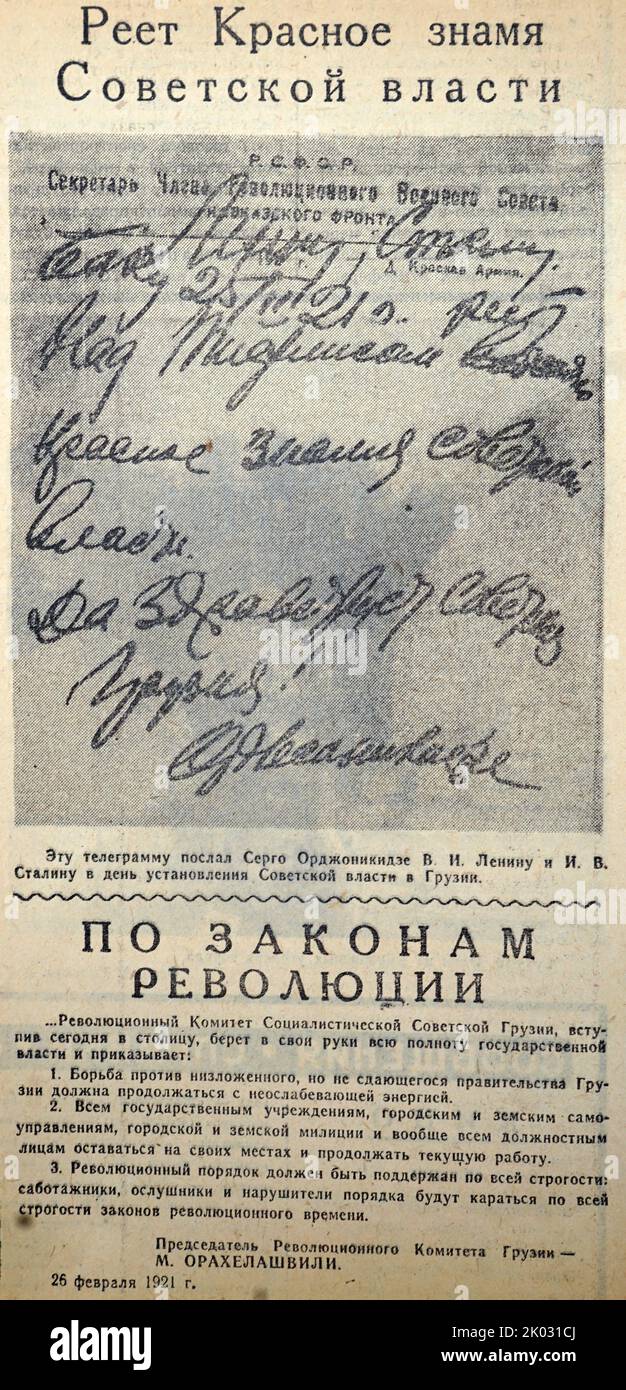 Реет Красное знамя
Советской власти
Р.С.Ф.С.Р.
Секретарь Члена Революционного Военного Совета
Кавказского фронта
Д. Красная Армия.
Баку 25/II 21 г. реет
Над Тифлисом
Красное знамя советской
власти.
Да здравствует Советская
Грузия!
Орджоникидзе
Эту телеграмму послал Серго Орджоникидзе В. И. Ленину и И. В.
Сталину в день установления Советской власти в Грузии.
ПО ЗАКОНАМ
РЕВОЛЮЦИИ
...Революционный Комитет Социалистической Советской Грузии, всту-
пив сегодня в столицу, берет в свои руки всю полноту государственной
власти и приказывает:
1. Борьба против низложенного, но не сдающегося правительства Гру-
зии должна продолжаться с неослабевающей энергией.
2. Всем государственным учреждениям, городским и земским само-
управлениям, городской и земской милиции и вообще всем должностным
лицам оставаться на своих местах и продолжать текущую работу.
3. Революционный порядок должен быть поддержан по всей строгости:
саботажники, ослушники и нарушители порядка будут караться по всей
строгости законов революционного времени.
Председатель Революционного Комитета Грузии —
М. ОРАХЕЛАШВИЛИ.
26 февраля 1921 г.
alamy
Image ID: 2K031CJ
www.alamy.com